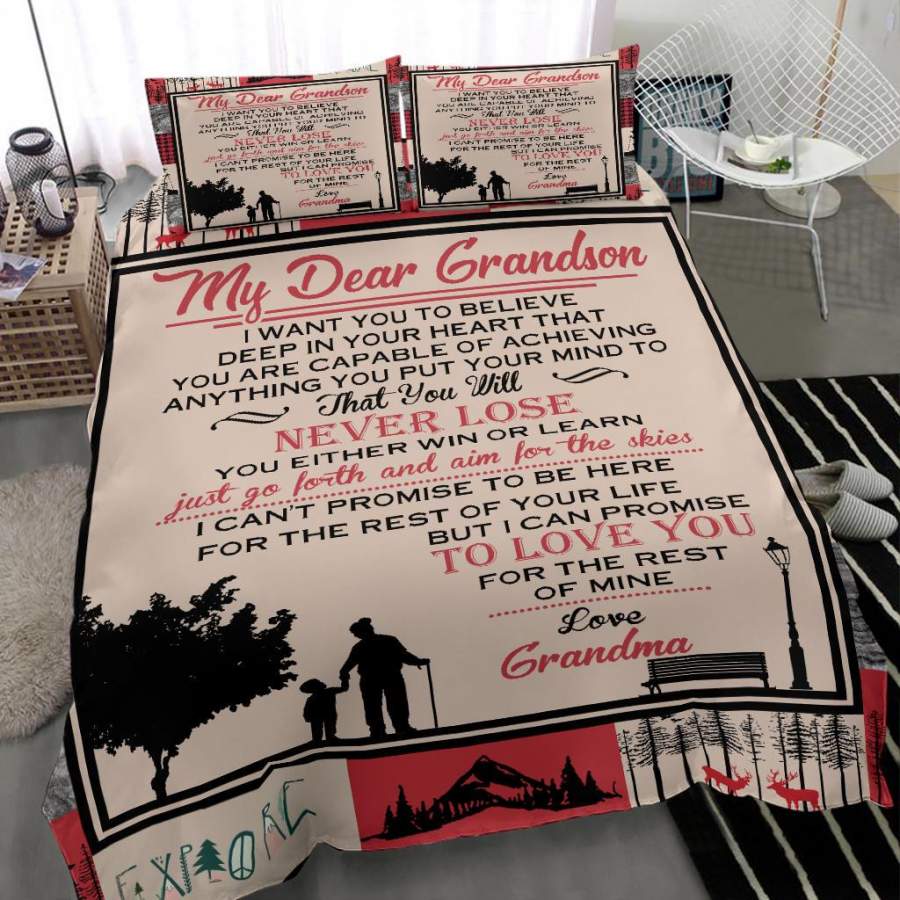 My Dear Grandson
I WANT YOU TO BELIEVE
DEEP IN YOUR HEART THAT
YOU ARE CAPABLE OF ACHIEVING
ANYTHING YOU PUT YOUR MIND TO
That You Will
NEVER LOSE
YOU EITHER WIN OR LEARN
just go forth and aim for the skies
I CAN'T PROMISE TO BE HERE
FOR THE REST OF YOUR LIFE
BUT I CAN PROMISE
TO LOVE YOU
FOR THE REST
OF MINE
Love
Grandma
My Dear Grandson
I WANT YOU TO BELIEVE
DEEP IN YOUR HEART THAT
YOU ARE CAPABLE OF ACHIEVING
ANYTHING YOU PUT YOUR MIND TO
That You Will
NEVER LOSE
YOU EITHER WIN OR LEARN
just go forth and aim for the skies
I CAN'T PROMISE TO BE HERE
FOR THE REST OF YOUR LIFE
BUT I CAN PROMISE
TO LOVE YOU
FOR THE REST
OF MINE
Love
Grandma
My Dear Grandson
I WANT YOU TO BELIEVE
DEEP IN YOUR HEART THAT
YOU ARE CAPABLE OF ACHIEVING
ANYTHING YOU PUT YOUR MIND TO
That You Will
NEVER LOSE
YOU EITHER WIN OR LEARN
just go forth and aim for the skies
I CAN'T PROMISE TO BE HERE
FOR THE REST OF YOUR LIFE
BUT I CAN PROMISE
TO LOVE YOU
FOR THE REST
OF MINE
Love
Grandma
EXPLORE